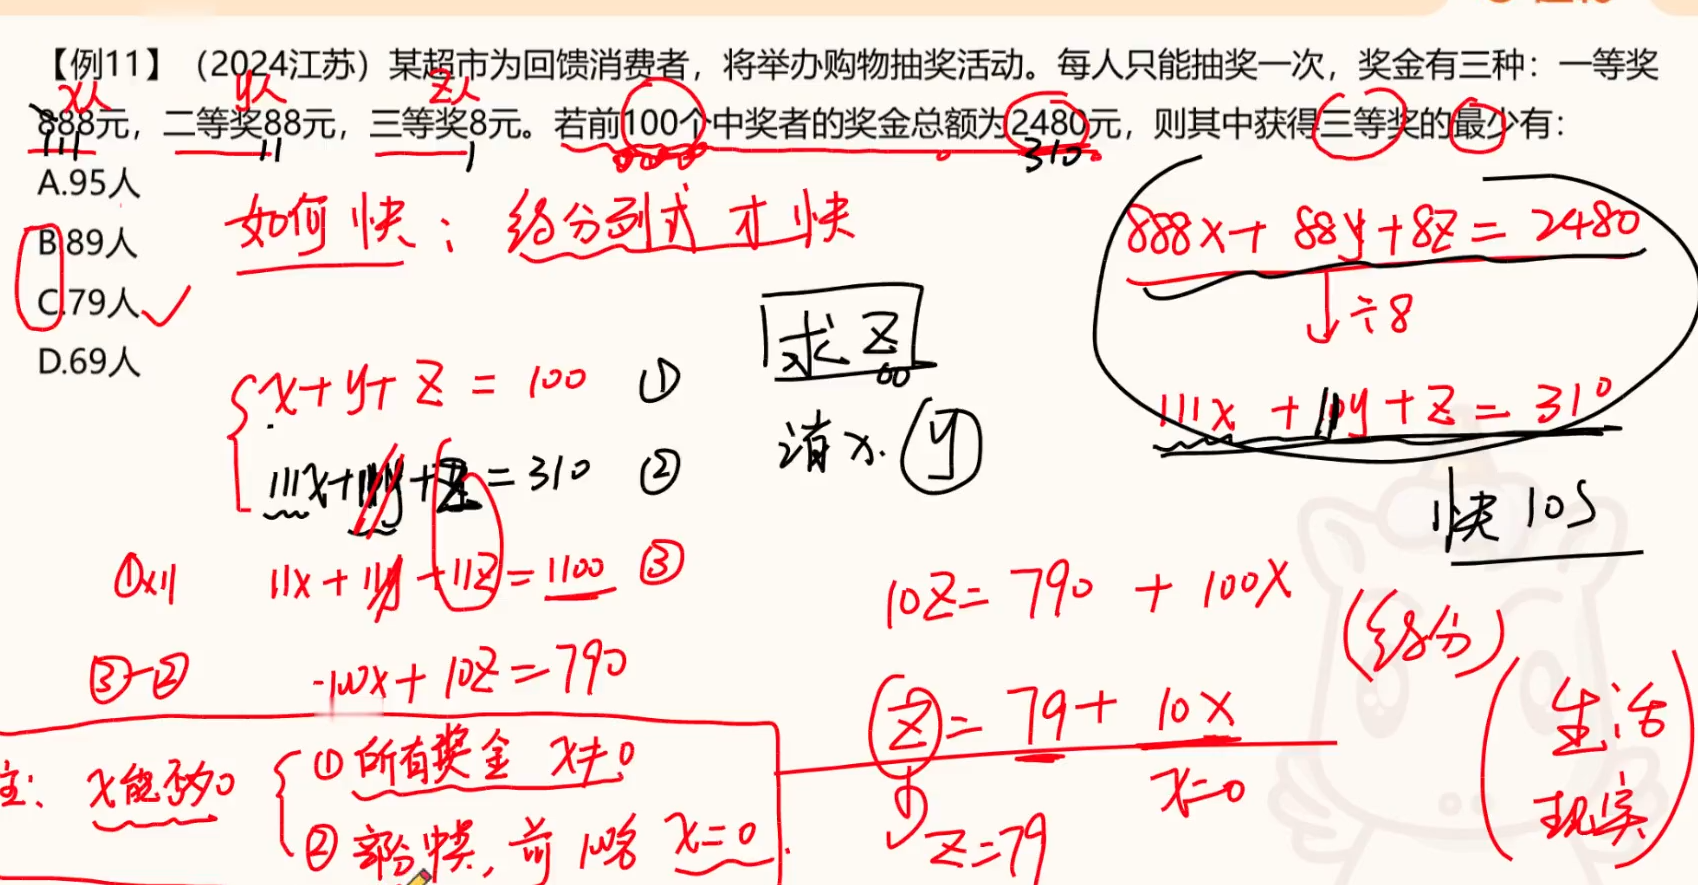 【例11】（2024江苏）某超市为回馈消费者，将举办购物抽奖活动。每人只能抽奖一次，奖金有三种：一等奖
x人 y人 z人
888元，二等奖88元，三等奖8元。若前100个中奖者的奖金总额为2480元，则其中获得三等奖的最少有：
111 11 1 310
A.95人
B.89人
C.79人
D.69人
如何快：约分列式才快
888x+88y+8z=2480
÷8
111x+11y+z=310
快10s
求z
消x.y
x+y+z=100 ①
111x+11y+z=310 ②
①x11 11x+11y+11z=1100 ③
③-② -100x+10z=790
10z=790+100x
(约分)
z=79+10x
x=0
z=79
(生活
现实)
注：x能否为0
①所有奖金 x≠0
②部分中奖，前100名 x=0.